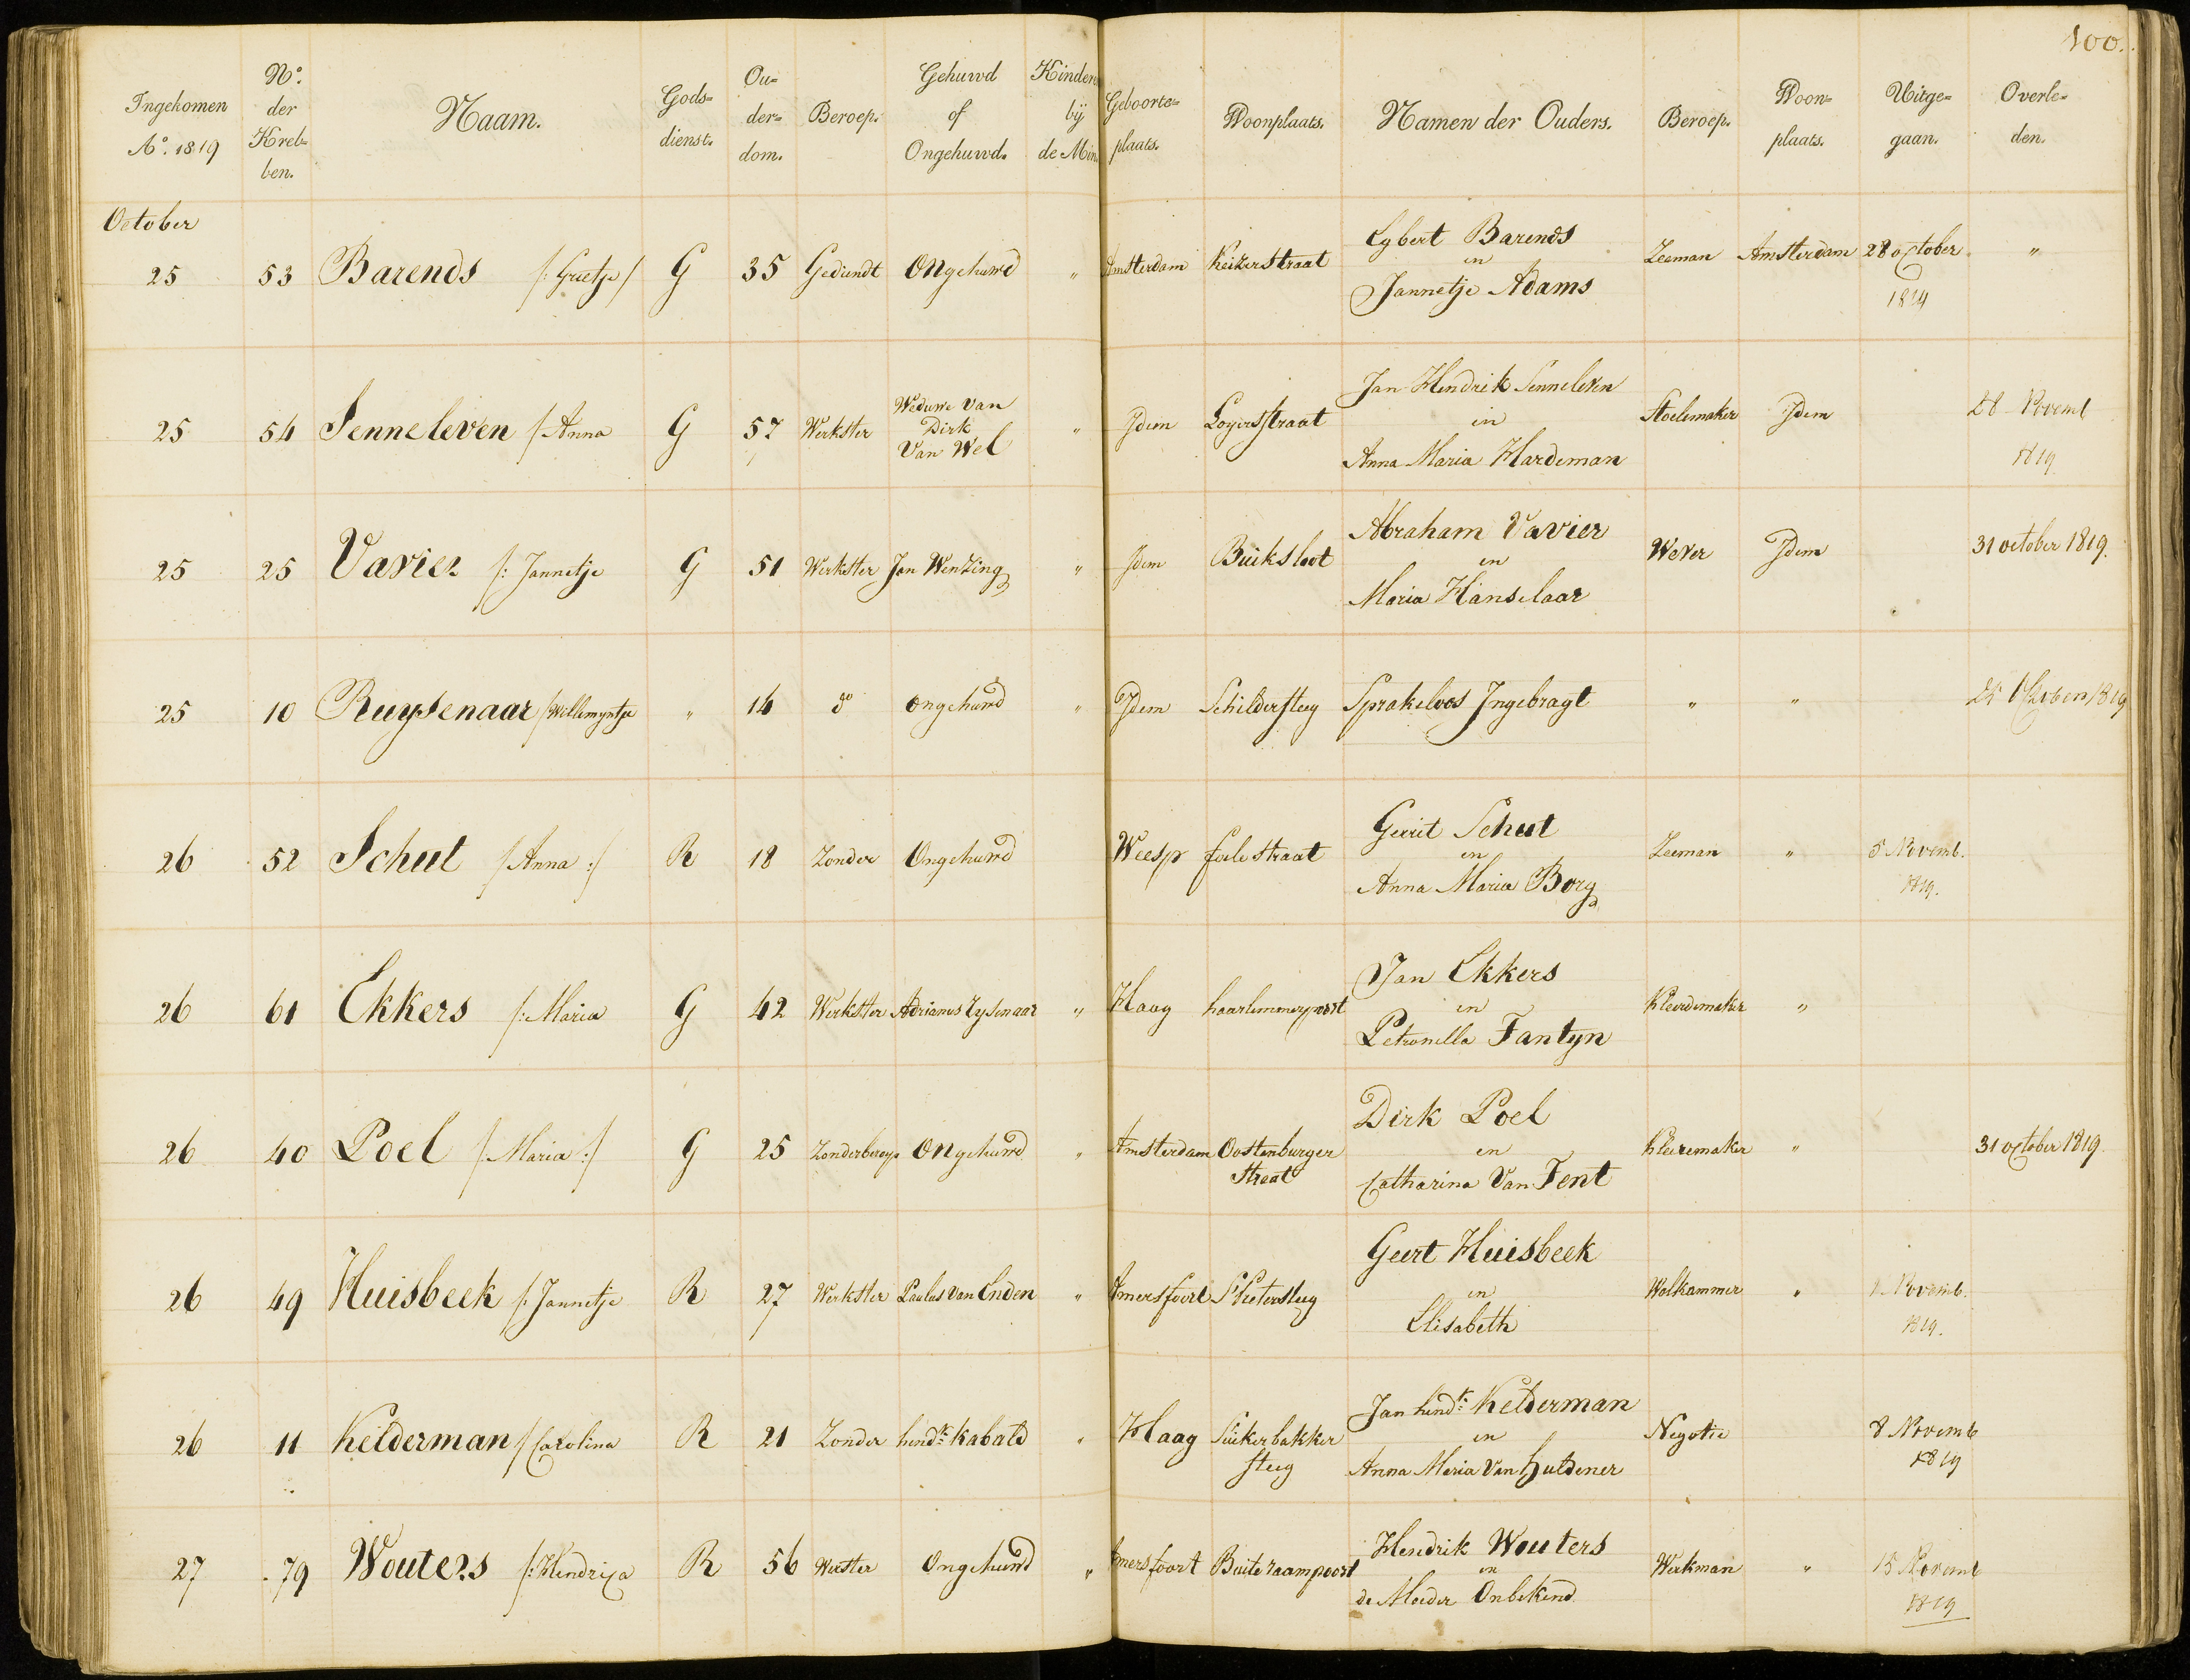 100.
Ingekomen Aº. 1819 Nº. der Kreb- ben. Naam. Gods- dienst. Ou- der- dom. Beroep. Gehuwd of Ongehuwd. Kindere bij de Min. Geboorte- plaats. Woonplaats. Namen der Ouders. Beroep. Woon- plaats. Uitge- gaan. Overle- den.
October
25 53 Barends /: Grietje / G 35 Gediendt Ongehuwd " Amsterdam Keizerstraat Egbert Barends en Jannetje Adams Zeeman Amsterdam 28 october 1819 "
25 54 Senneleven /: Anna G 57 Werkster Weduwe van Dirk Van Wel " Idem Loyersstraat Jan Hendrik Senneleven en Anna Maria Hardeman Stoelemaker Idem 28 Novemb 1819
25 25 Vavier /: Jannetje G 51 Werkster Jan Wenzing " Idem Buiksloot Abraham Vavier en Maria Hanselaar Wever Idem 31 october 1819.
25 10 Ruysenaar / Willemyntje " 14 dº ongehuwd " Idem Schildersteeg Sprakeloos Ingebragt " " 25 October 1819
26 52 Schut /: Anna :/ R 18 Zonder Ongehuwd Weesp foelestraat Gerrit Schut en Anna Maria Borg Zeeman " 5 Novemb. 1819.
26 61 Ekkers /: Maria G 42 Werkster Adrianus Zysenaar " Haag haarlemmerpoort Jan Ekkers en Petronella Fantyn Kleerdemaker "
26 40 Poel /: Maria :/ G 25 Zonderberoep Ongehuwd " Amsterdam Oostenburger Straat Dirk Poel en Catharina Van Fent Kleiremaker " 31 october 1819.
26 49 Huisbeek /: Jannetje R 27 Werkster Paulus van Enden " Amersfoort St Pietersteeg Geert Huisbeek en Elisabeth Wolkammer " Novemb. 1819.
26 11 Kelderman /: Carolina R 21 Zonder hendk. Kabald " Haag Suikerbakker steeg Jan hendk. Kelderman en Anna Maria Van Huldener Negotie 8 Novemb 1819
27 79 Wouters /: Hendrica R 56 Werster Ongehuwd " Amersfoort Buite raampoort Hendrik Wouters en de Moeder Onbekend Werkman " 15 Novemb 1819